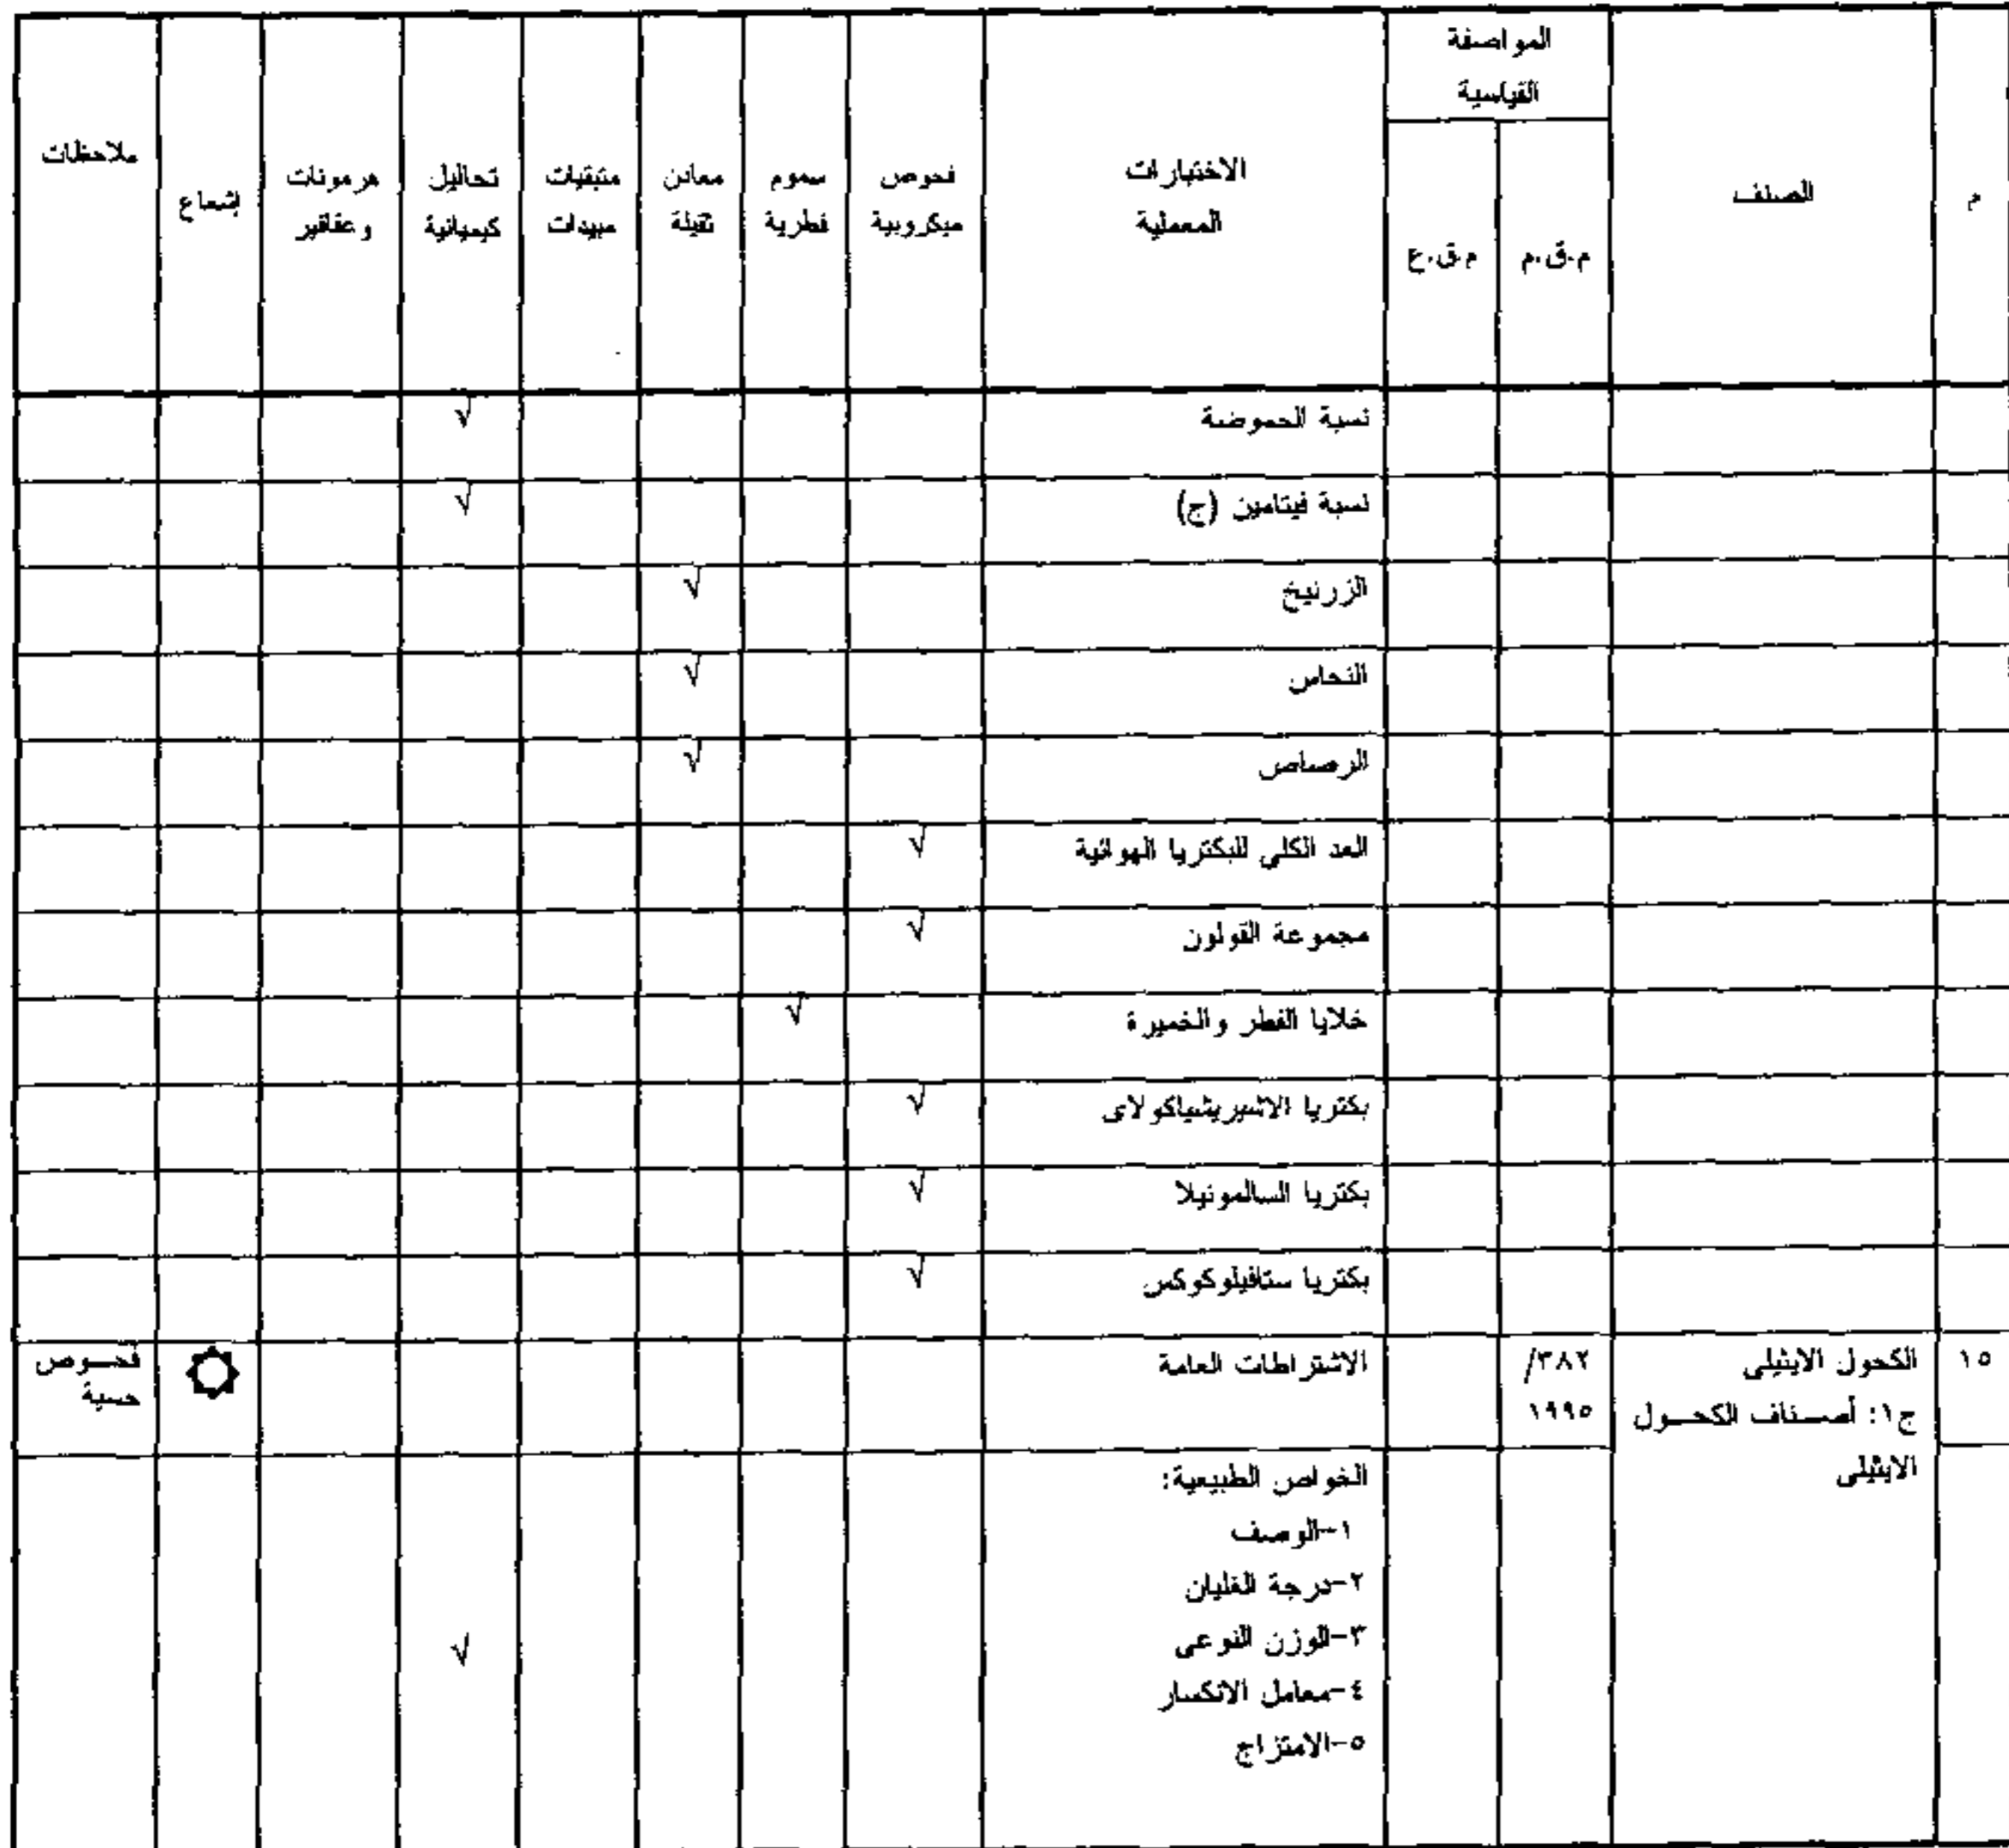 م
الصنف
المواصفة
القياسية
م.ق.م
م.ق.ع
الاختبارات
المعملية
فحوص
ميكروبية
سموم
فطرية
معادن
ثقيلة
متبقيات
مبيدات
تحاليل
كيميائية
هرمونات
وعقاقير
إشعاع
ملاحظات
نسبة الحموضة √
نسبة فيتامين (ج) √
الزرنيخ √
النحاس √
الرصاص √
العد الكلي للبكتريا الهوائية √
مجموعة القولون √
خلايا الفطر والخميرة √
بكتريا الاشيريشياكولاى √
بكتريا السالمونيلا √
بكتريا ستافيلوكوكس √
١٥
الكحول الايثيلى
ج١: أصناف الكحول
الايثيلى
٣٨٢/
١٩٩٥
الاشتراطات العامة
فحوص
حسية
الخواص الطبيعية:
١-الوصف
٢-درجة الغليان
٣-الوزن النوعى √
٤-معامل الانكسار
٥-الامتزاج